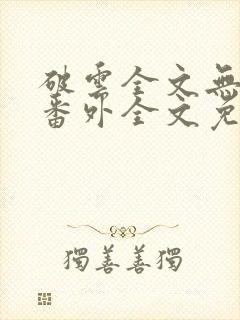 破雲全文無
番外全文免
獨善善獨